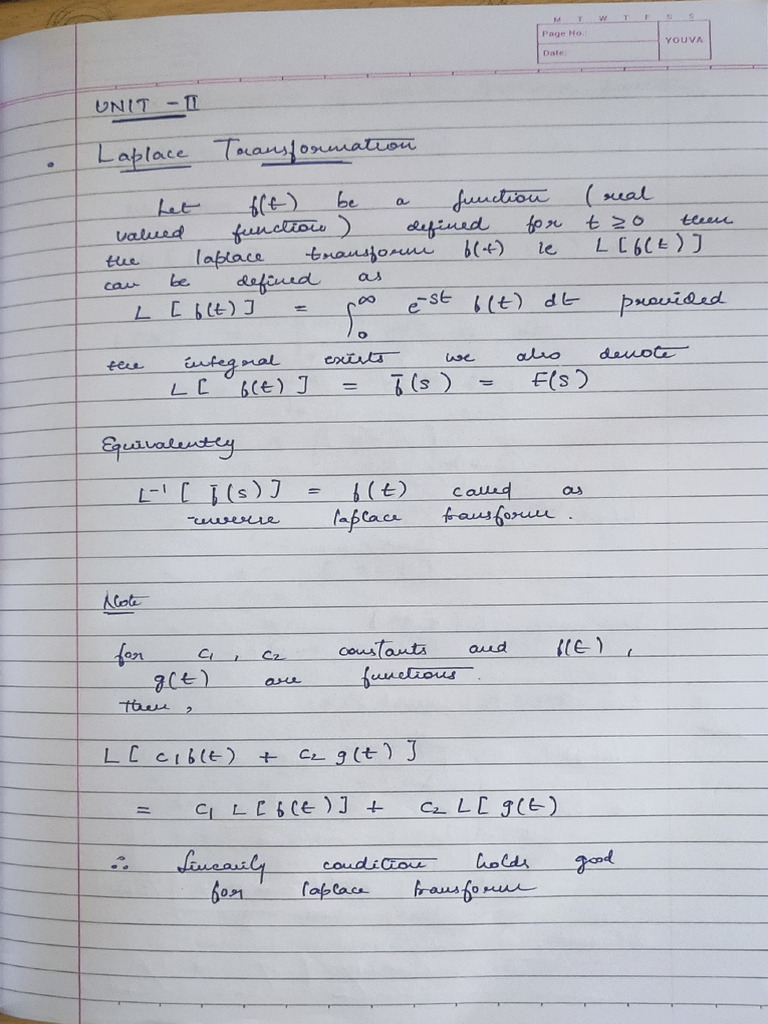 M T W T F S S
Page No.:
YOUVA
Date:
UNIT - II
Laplace Transformation
Let f(t) be a function (real
valued function) defined for t ≥ 0 then
the laplace transform f(t) ie L[f(t)]
can be defined as
L [f(t)] = ∫₀^∞ e^-st f(t) dt provided
the integral exists we also denote
L[ f(t) ] = f̄(s) = F(s)
Equivalently
L⁻¹ [ f̄(s) ] = f(t) called as
inverse laplace transform.
Note
for c₁, c₂ constants and f(t),
g(t) are functions.
Then,
L[ c₁f(t) + c₂ g(t) ]
= c₁ L[f(t)] + c₂ L[ g(t)
∴ Linearily condition holds good
for laplace transform